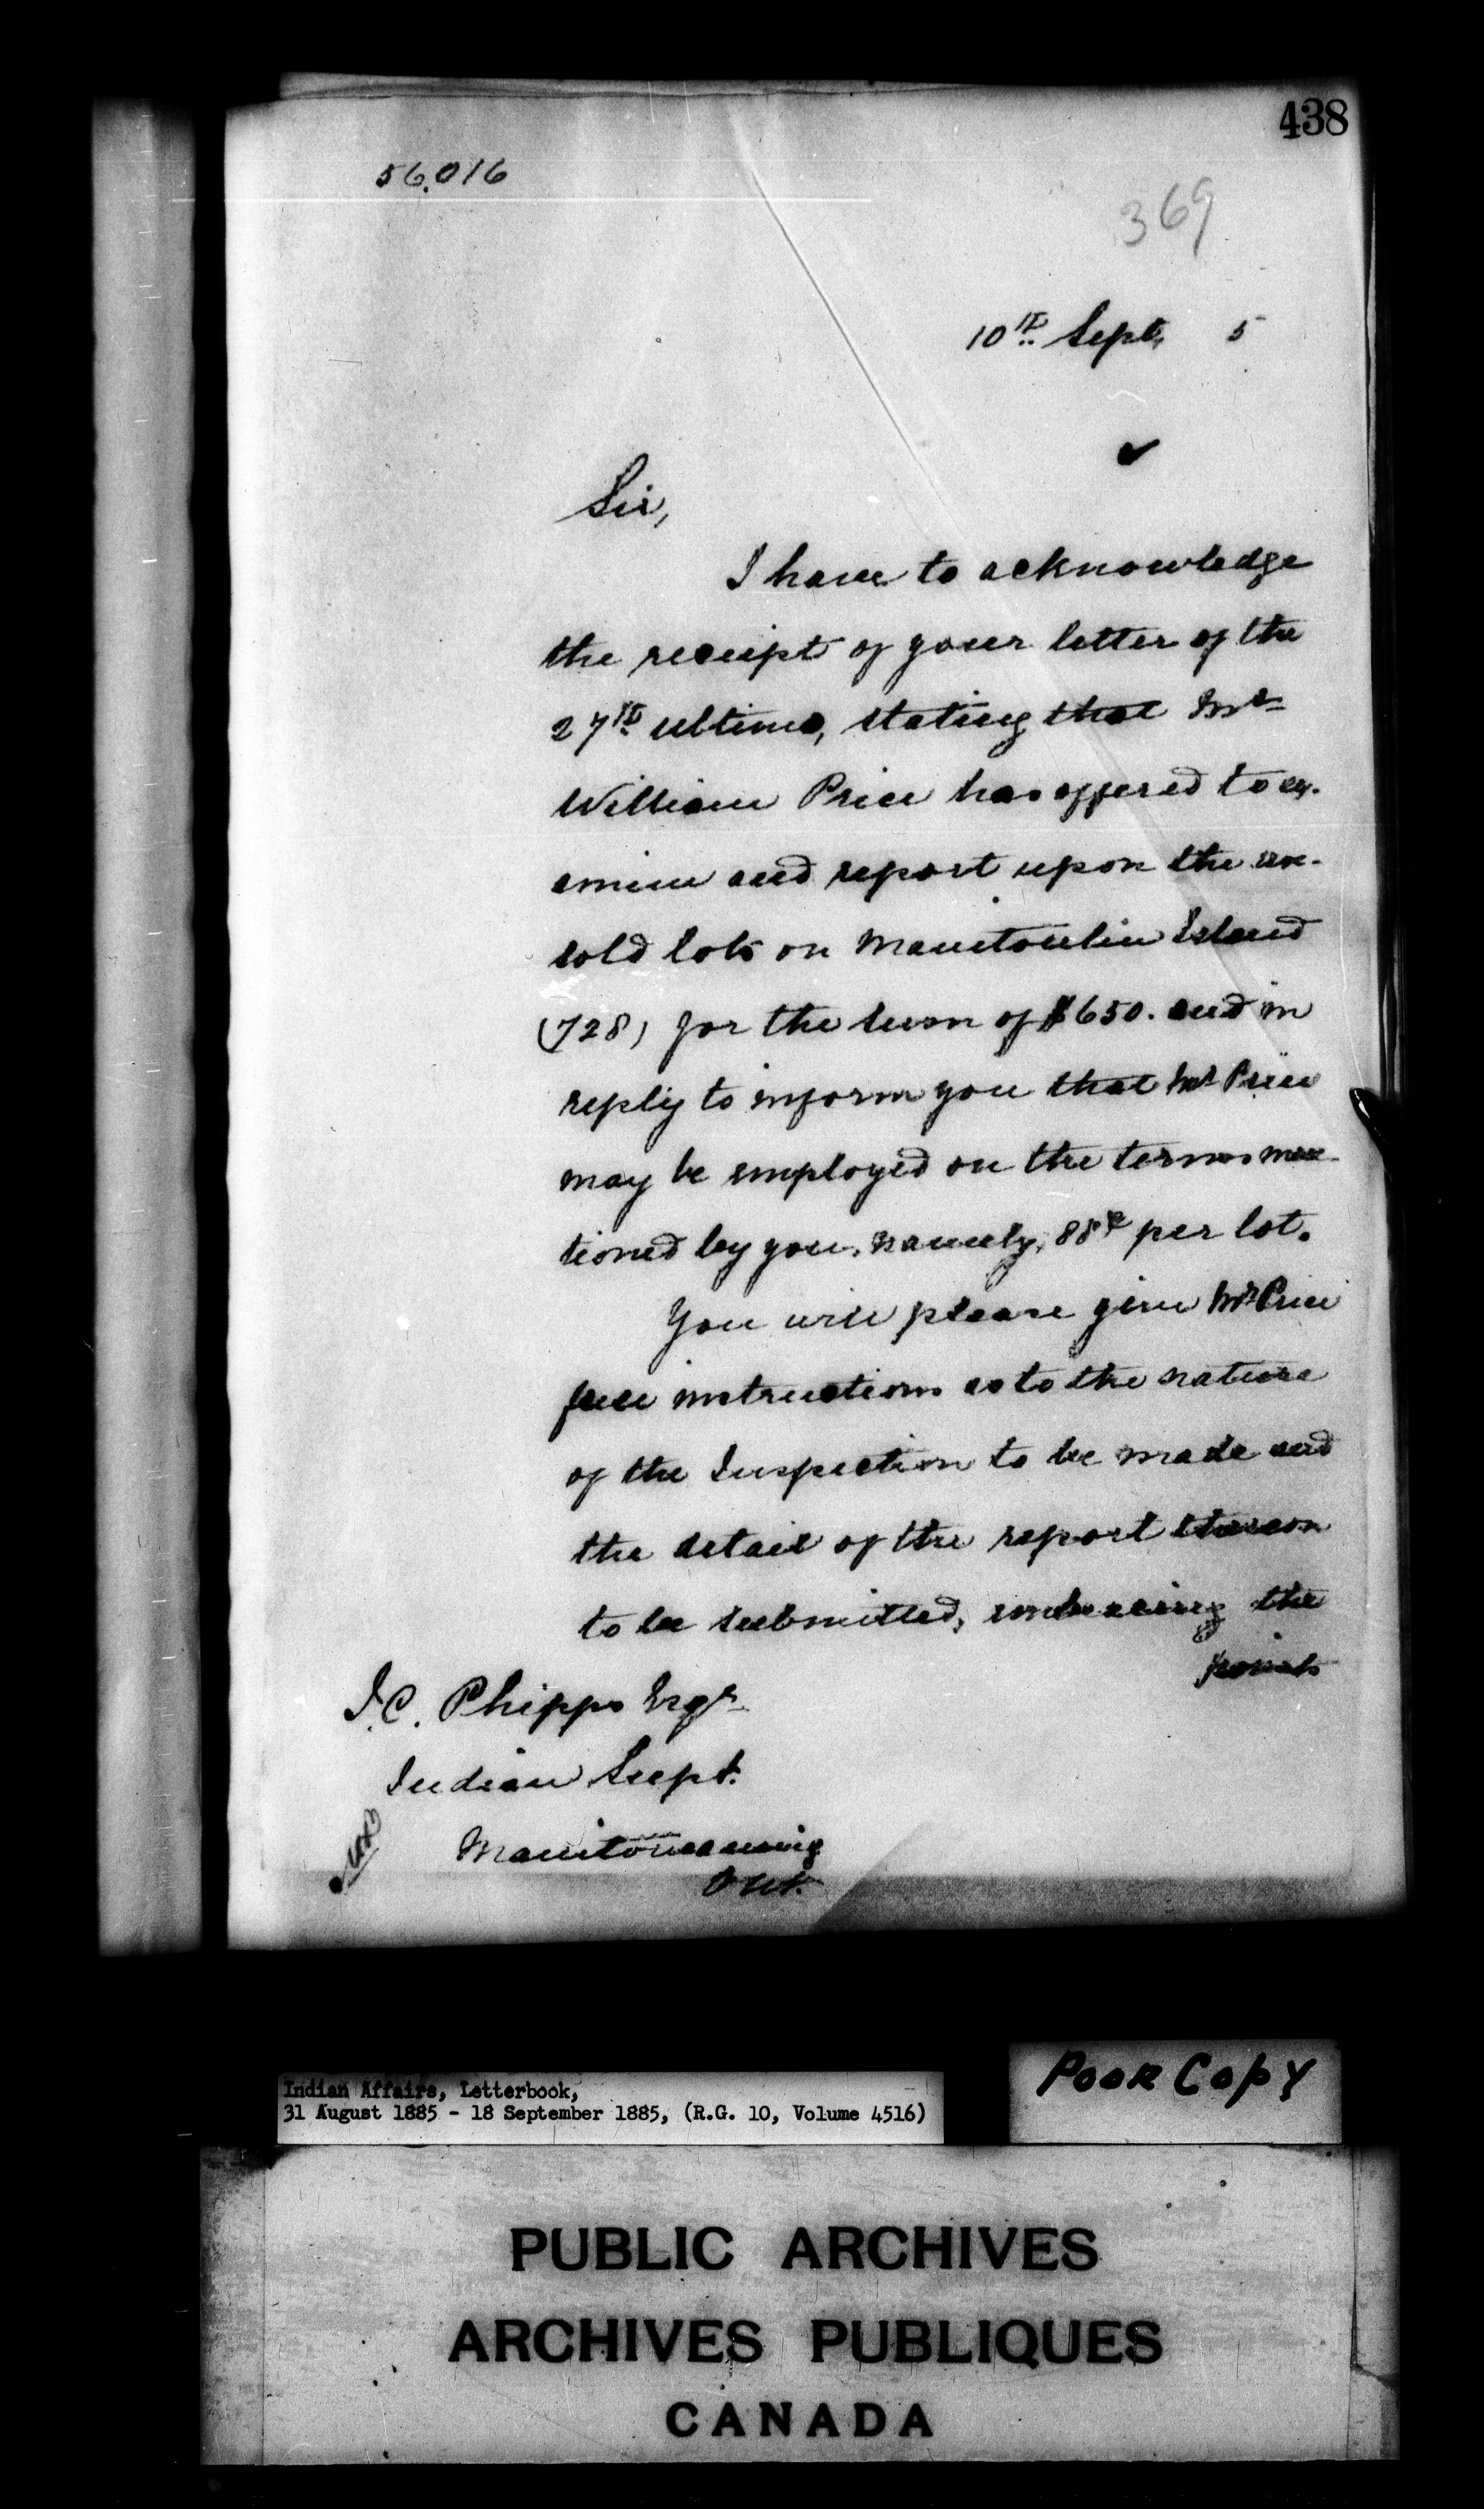 438
56.016
369
10th Sept. 5
Sir,
I have to acknowledge
the receipt of your letter of the
27th ultimo, stating that Mr
William Price has offered to ex-
amine and report upon the un-
sold lots on Manitoulin Island
(728) for the sum of $650. and in
reply to inform you that Mr Price
may be employed on the terms men-
tioned by you, namely, 88¢ per lot.
You will please give Mr Price
full instructions as to the nature
of the Inspection to be made and
the detail of the report thereon
to be submitted, embracing the
points
J.C. Phipps Esqr
Indian Supt.
Manitowaning
Ont.
Poor Copy
Indian Affairs, Letterbook,
31 August 1885 - 18 September 1885, (R.G. 10, Volume 4516)
PUBLIC ARCHIVES
ARCHIVES PUBLIQUES
CANADA